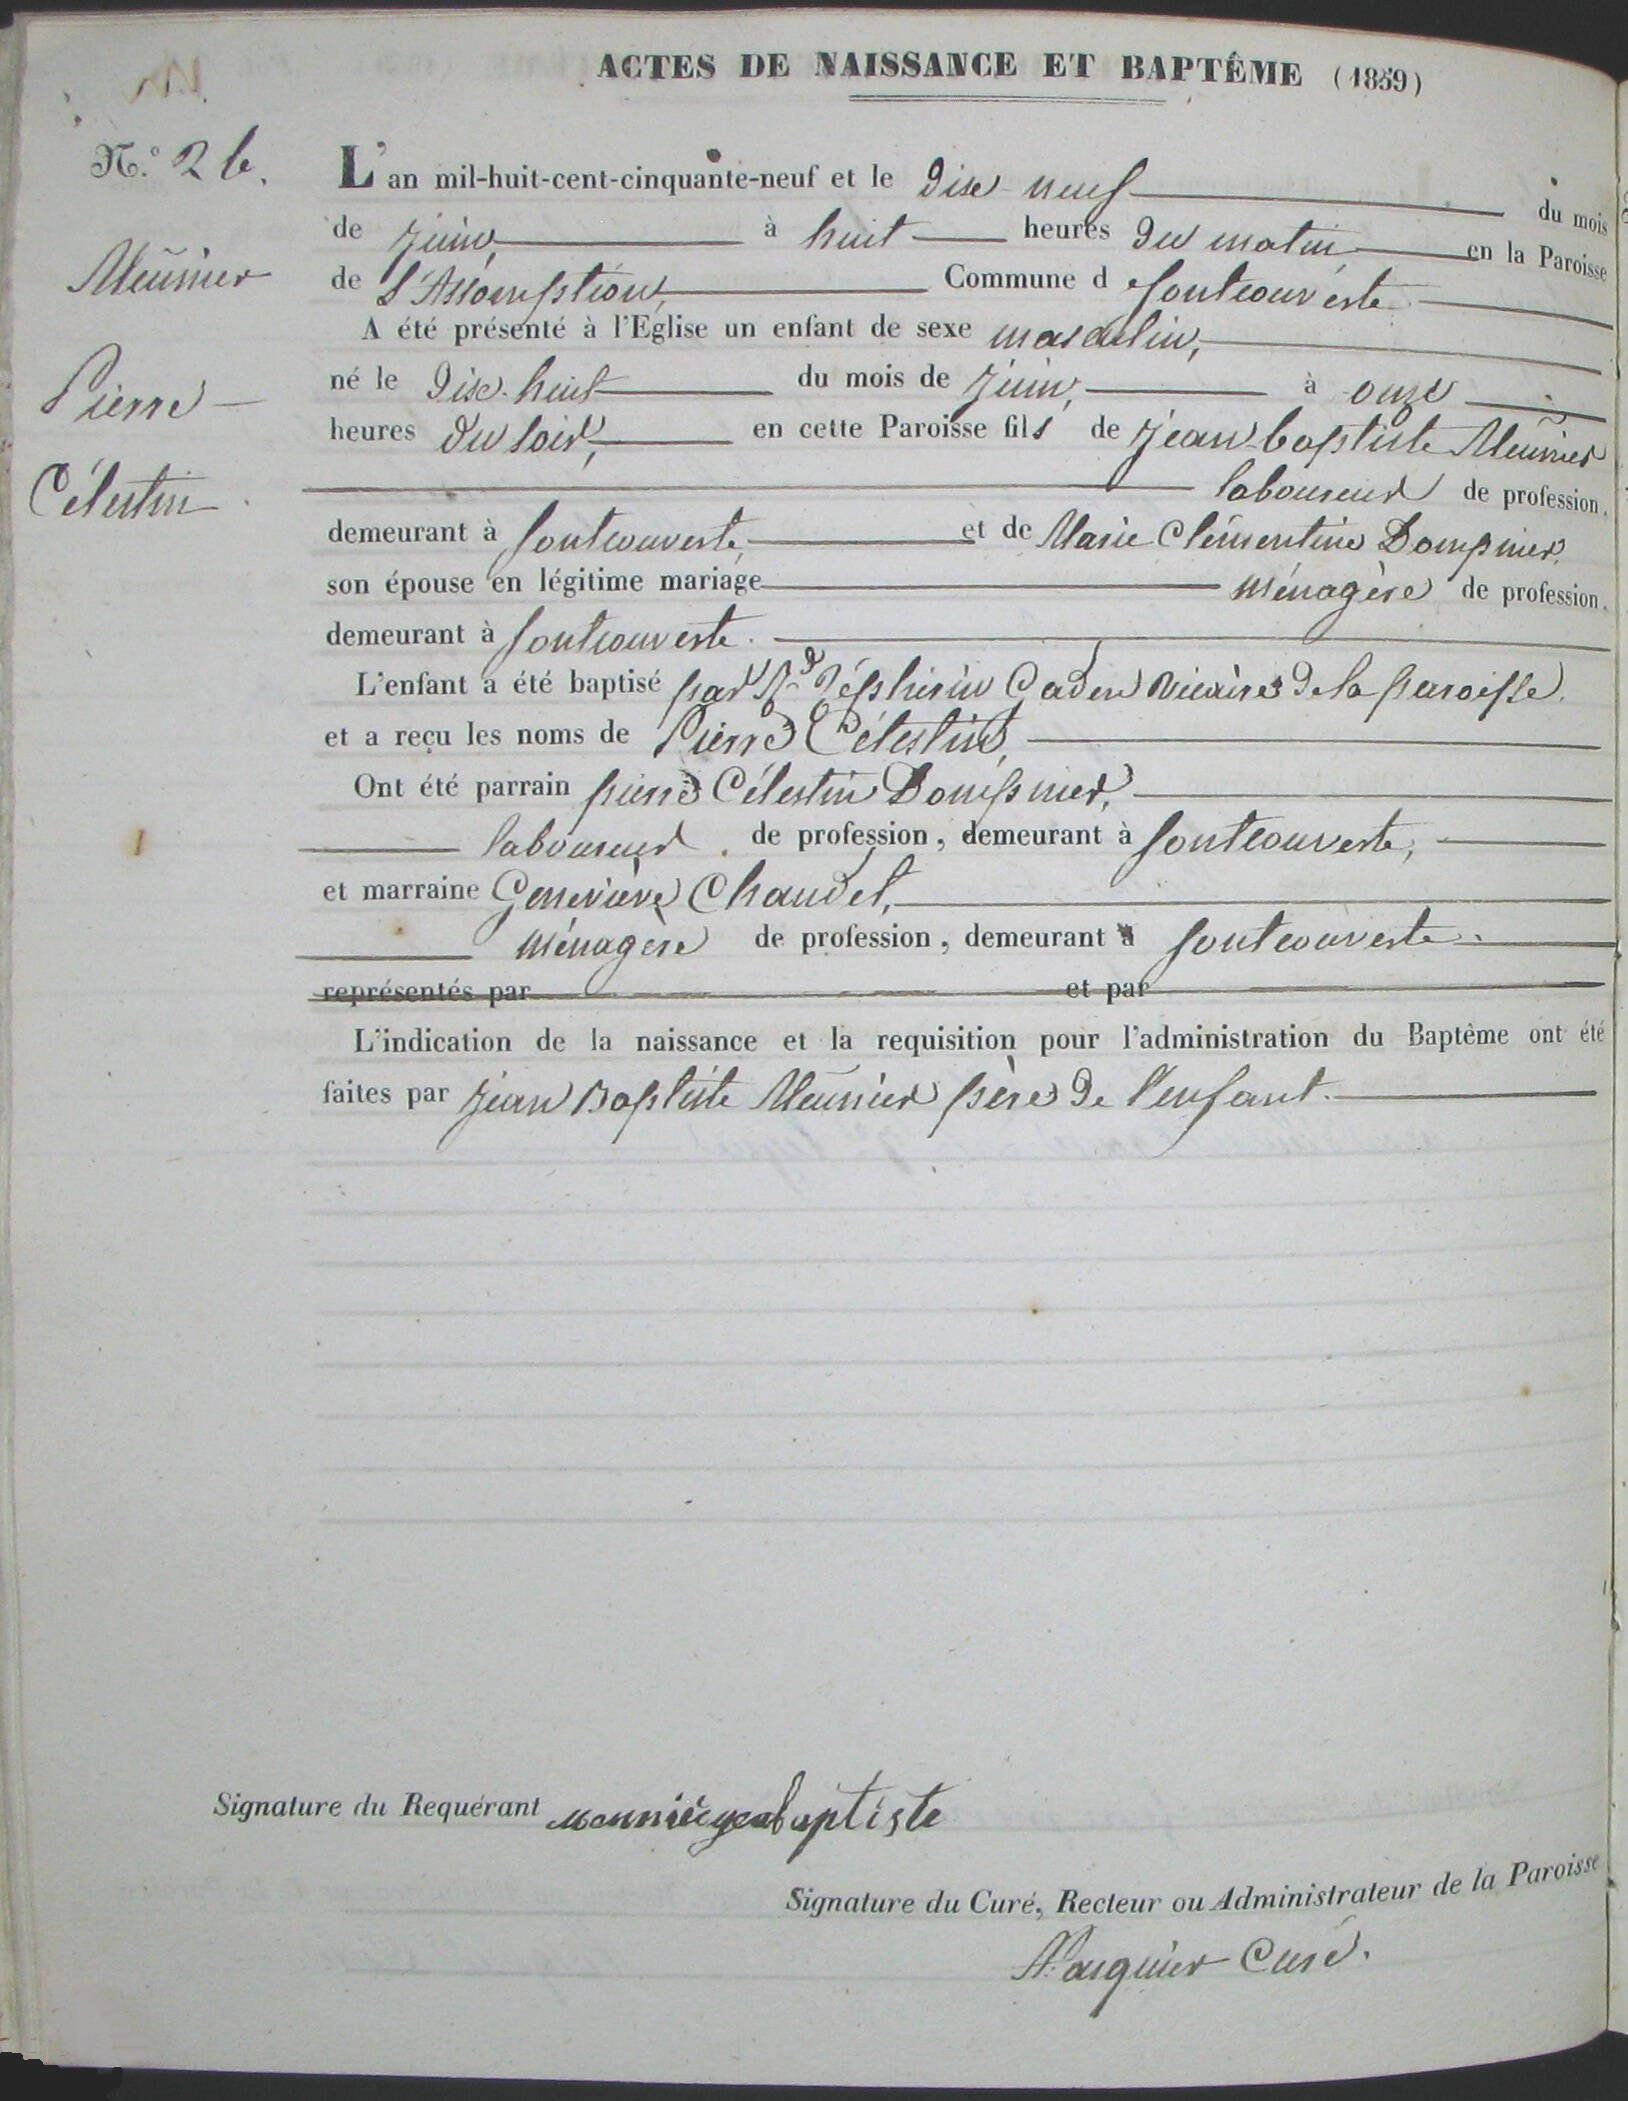 ACTES DE NAISSANCE ET BAPTÊME (1859)
N.° 26.
Meunier
Pierre
Célestin
L'an mil-huit-cent-cinquante-neuf et le dix-neuf du mois
de juin, à huit heures du matin en la Paroisse
de l'Assomption, Commune d e fontcouverte
A été présenté à l'Eglise un enfant de sexe masculin,
né le dix-huit du mois de juin, à onze
heures du soir, en cette Paroisse fils de jean-baptiste Meunier
laboureur de profession,
demeurant à fontcouverte, et de Marie Clémentine Dompnier,
son épouse en légitime mariage ménagère de profession,
demeurant à fontcouverte.
L'enfant a été baptisé par Rd Zéphirin vicaire de la paroisse.
et a reçu les noms de Pierre Célestin,
Ont été parrain pierre Célestin Dompnier,
laboureur de profession, demeurant à fontcouverte,
et marraine Geneviève Chaudet,
ménagère de profession, demeurant à fontcouverte.
représentés par et par
L'indication de la naissance et la requisition pour l'administration du Baptême ont été
faites par jean Baptiste Meunier père de l'enfant.
Signature du Requérant baptiste
Signature du Curé, Recteur ou Administrateur de la Paroisse
Curé.